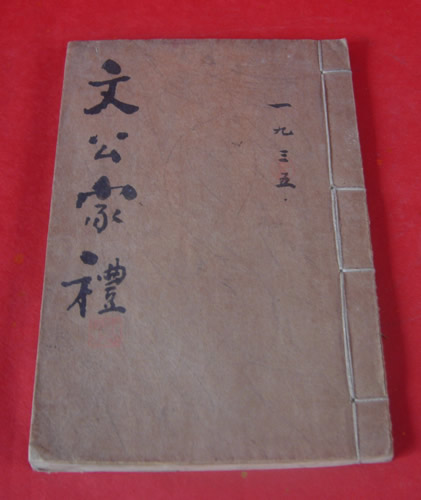 一九三五.
文公家禮